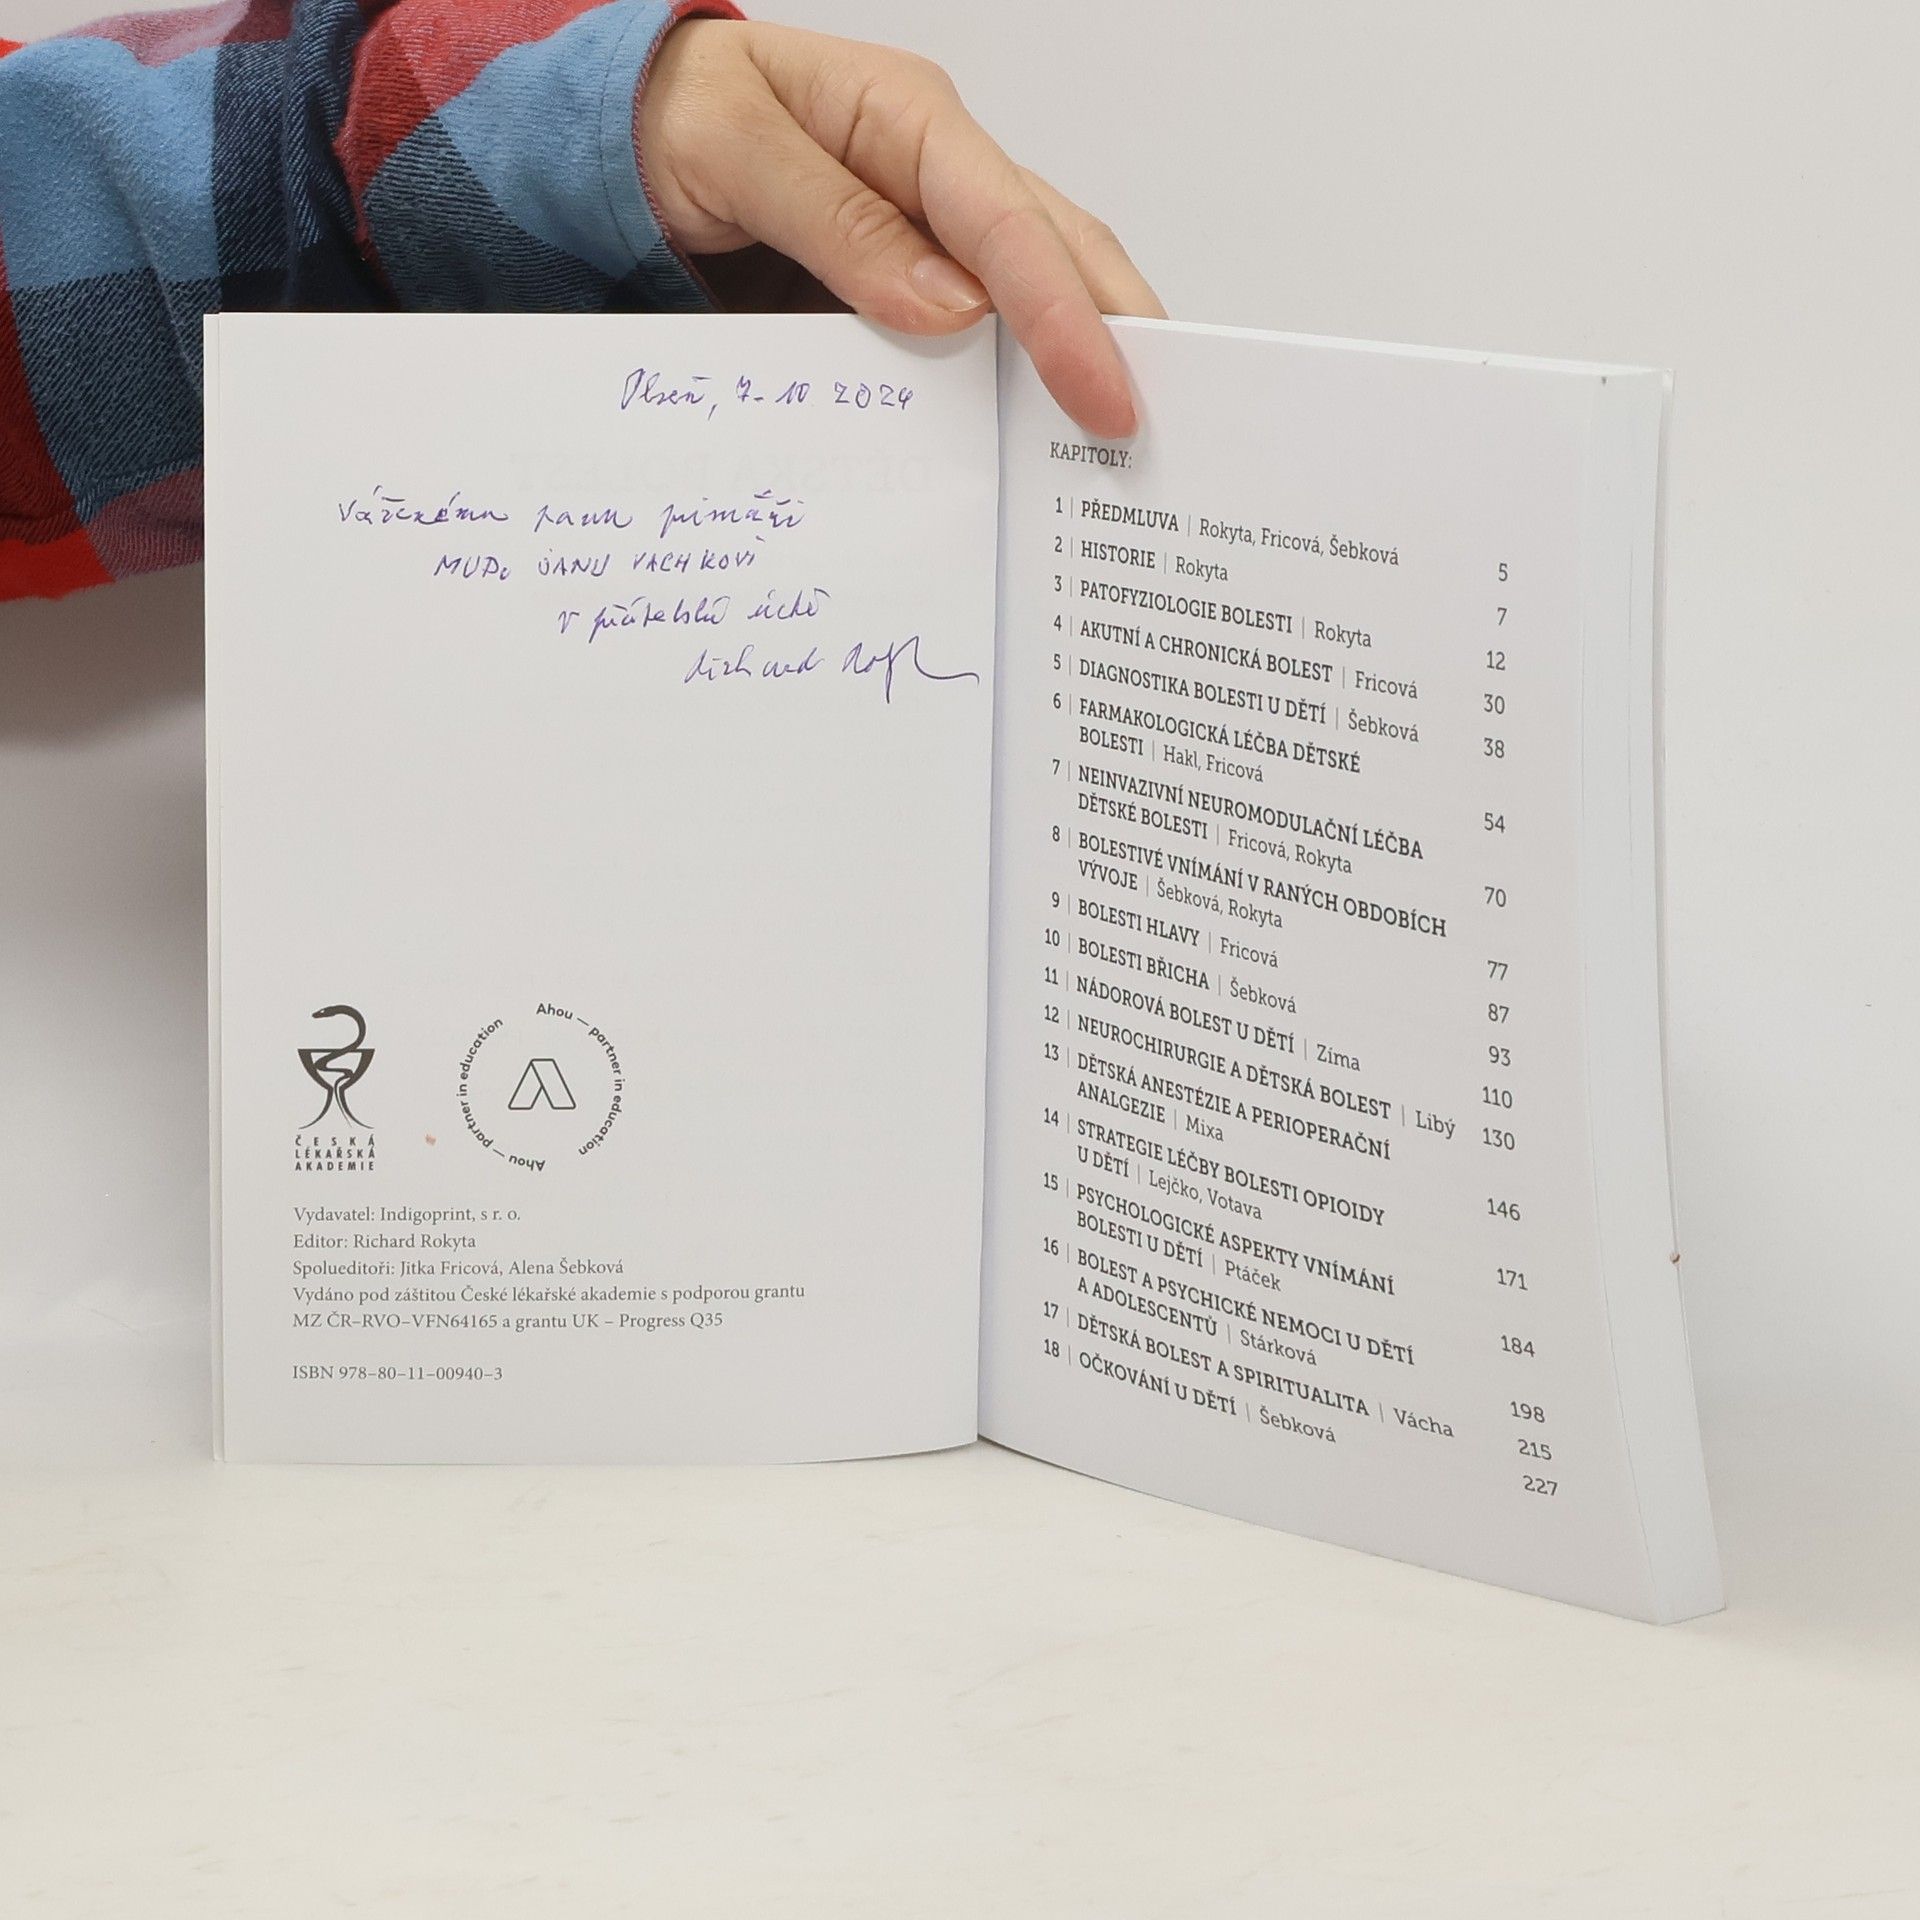 Plzeň, 7. 10 2024
Váženému panu primáři
MUDr JANU VACHKOVI
v přátelské úctě
Richard
ČESKÁ
LÉKAŘSKÁ
AKADEMIE
Ahou — partner in education
Ahou — partner in education
Vydavatel: Indigoprint, s r. o.
Editor: Richard Rokyta
Spolueditoři: Jitka Fricová, Alena Šebková
Vydáno pod záštitou České lékařské akademie s podporou grantu
MZ ČR–RVO–VFN64165 a grantu UK – Progress Q35
ISBN 978–80–11–00940–3
KAPITOLY:
1 | PŘEDMLUVA | Rokyta, Fricová, Šebková 5
2 | HISTORIE | Rokyta 7
3 | PATOFYZIOLOGIE BOLESTI | Rokyta 12
4 | AKUTNÍ A CHRONICKÁ BOLEST | Fricová 30
5 | DIAGNOSTIKA BOLESTI U DĚTÍ | Šebková 38
6 | FARMAKOLOGICKÁ LÉČBA DĚTSKÉ
BOLESTI | Hakl, Fricová 54
7 | NEINVAZIVNÍ NEUROMODULAČNÍ LÉČBA
DĚTSKÉ BOLESTI | Fricová, Rokyta 70
8 | BOLESTIVÉ VNÍMÁNÍ V RANÝCH OBDOBÍCH
VÝVOJE | Šebková, Rokyta 77
9 | BOLESTI HLAVY | Fricová 87
10 | BOLESTI BŘICHA | Šebková 93
11 | NÁDOROVÁ BOLEST U DĚTÍ | Zíma 110
12 | NEUROCHIRURGIE A DĚTSKÁ BOLEST | Libý 130
13 | DĚTSKÁ ANESTÉZIE A PERIOPERAČNÍ
ANALGEZIE | Mixa 146
14 | STRATEGIE LÉČBY BOLESTI OPIOIDY
U DĚTÍ | Lejčko, Votava 171
15 | PSYCHOLOGICKÉ ASPEKTY VNÍMÁNÍ
BOLESTI U DĚTÍ | Ptáček 184
16 | BOLEST A PSYCHICKÉ NEMOCI U DĚTÍ
A ADOLESCENTŮ | Stárková 198
17 | DĚTSKÁ BOLEST A SPIRITUALITA | Vácha 215
18 | OČKOVÁNÍ U DĚTÍ | Šebková 227